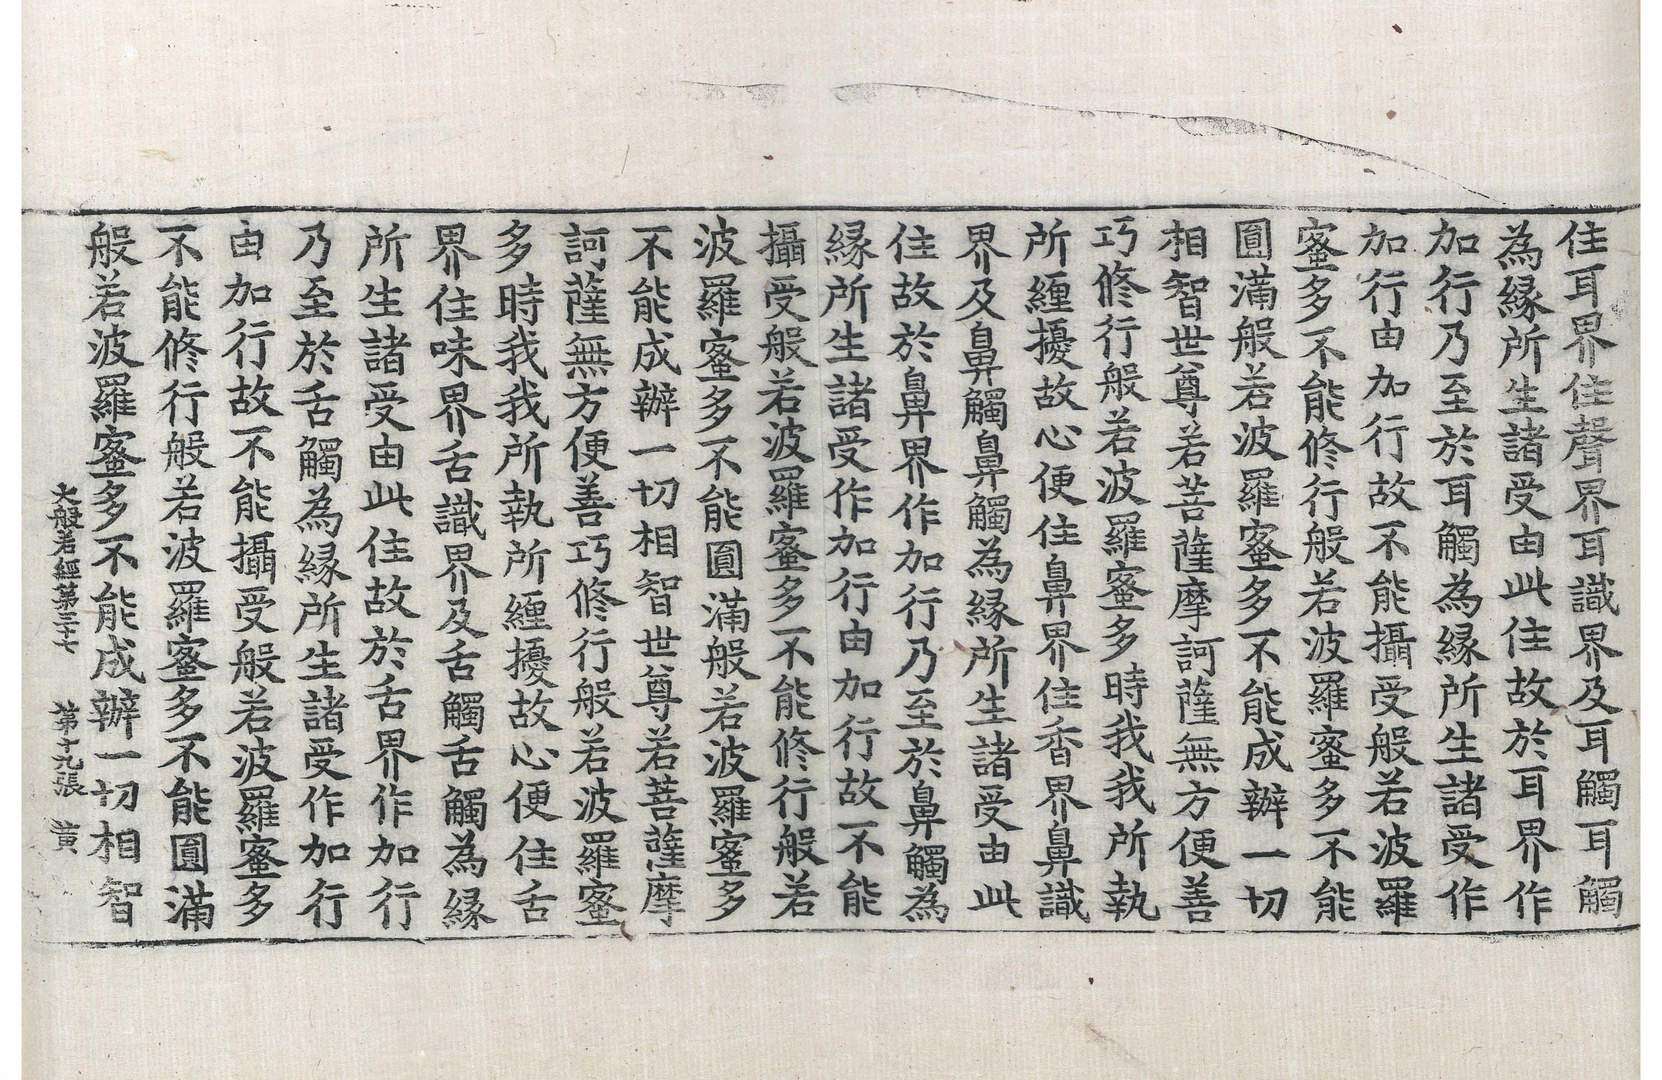 住耳界住聲界耳識界及耳觸耳觸
為縁所生諸受由此住故於耳界作
加行乃至於耳觸為縁所生諸受作
加行由加行故不能攝受般若波羅
蜜多不能修行般若波羅蜜多不能
圓滿般若波羅蜜多不能成辦一切
相智世尊若菩薩摩訶薩無方便善
巧修行般若波羅蜜多時我我所執
所纏擾故心便住鼻界住香界鼻識
界及鼻觸鼻觸為縁所生諸受由此
住故於鼻界作加行乃至於鼻觸為
縁所生諸受作加行由加行故不能
攝受般若波羅蜜多不能修行般若
波羅蜜多不能圓滿般若波羅蜜多
不能成辦一切相智世尊若菩薩摩
訶薩無方便善巧修行般若波羅蜜
多時我我所執所纏擾故心便住舌
界住味界舌識界及舌觸舌觸為縁
所生諸受由此住故於舌界作加行
乃至於舌觸為縁所生諸受作加行
由加行故不能攝受般若波羅蜜多
不能修行般若波羅蜜多不能圓滿
般若波羅蜜多不能成辦一切相智
大般若經第三十七 第十九張 黃